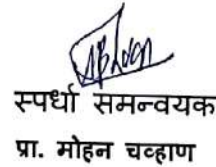 स्पर्धा समन्वयक
प्रा. मोहन चव्हाण